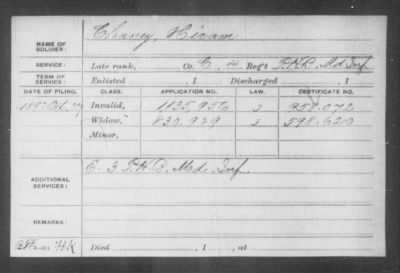 NAME OF SOLDIER: Chaney, Hiram
SERVICE: Late rank, Co. C, 4 Reg't P.H.B. Md. Inf.
TERM OF SERVICE: Enlisted , 1 Discharged , 1
DATE OF FILING. CLASS. APPLICATION NO. LAW. CERTIFICATE NO.
1892 Invalid, 1135,956 2 958.072
Widow, 830,929 2 598.620
Minor,
ADDITIONAL SERVICES: C-3 P.H.B. Md. Inf.
REMARKS:
Died , 1 , at